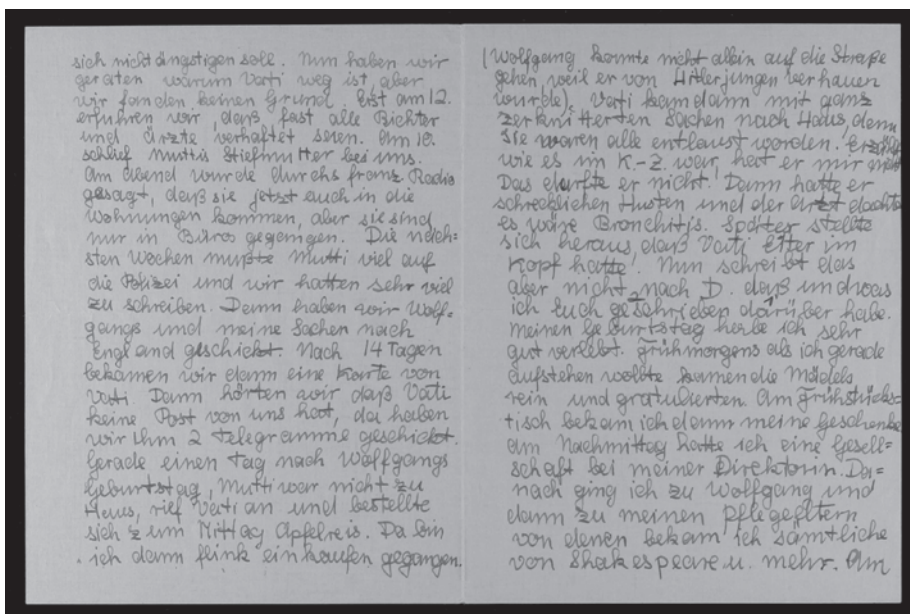 sich nicht ängstigen soll. Nun haben wir
geraten warum Vati weg ist aber
wir fanden keinen Grund. Erst am 12.
erfuhren wir, daß fast alle Richter
und Ärzte verhaftet seien. Am 10.
schlief Muttis Stiefmutter bei uns.
Am abend wurde durchs franz. Radio
gesagt, daß sie jetzt auch in die
Wohnungen kommen, aber sie sind
nur in Büros gegangen. Die näch=
sten Wochen mußte Mutti viel auf
die Polizei und wir hatten sehr viel
zu schreiben. Dann haben wir Wolf=
gangs und meine Sachen nach
England geschickt. Nach 14 Tagen
bekamen wir dann eine Karte von
Vati. Dann hörten wir daß Vati
keine Post von uns hat, da haben
wir Ihm 2 Telegramme geschickt.
Gerade einen Tag nach Wolfgangs
Geburtstag, Mutti war nicht zu
Haus, rief Vati an und bestellte
sich zum Mittag Apfelreis. Da bin
ich dann flink einkaufen gegangen.
(Wolfgang konnte nicht allein auf die Straße
gehen weil er von Hitlerjungen verhauen
wurde). Vati kam dann mit ganz
zerknitterten Sachen nach Haus, denn
sie waren alle entlaust worden. Erzählt
wie es im K-Z. war, hat er mir nicht
Das durfte er nicht! Dann hatte er
schrecklichen Husten und der Arzt dachte
es wäre Bronchitis. Später stellte
sich heraus daß Vati Eiter im
Kopf hatte! Nun schreibt das
aber nicht nach D. daß und was
ich Euch geschrieben darüber habe.
Meinen Geburtstag habe ich sehr
gut verlebt. Frühmorgens als ich gerade
aufstehen wollte kamen die Mädels
rein und gratulierten. Am Frühstücks=
tisch bekam ich dann meine Geschenke
am Nachmittag hatte ich eine Gesell=
schaft bei meiner Direktorin. Da=
nach ging ich zu Wolfgang und
dann zu meinen Pflegeeltern
von denen bekam ich sämtliche
von Shakespeare u. mehr. Am